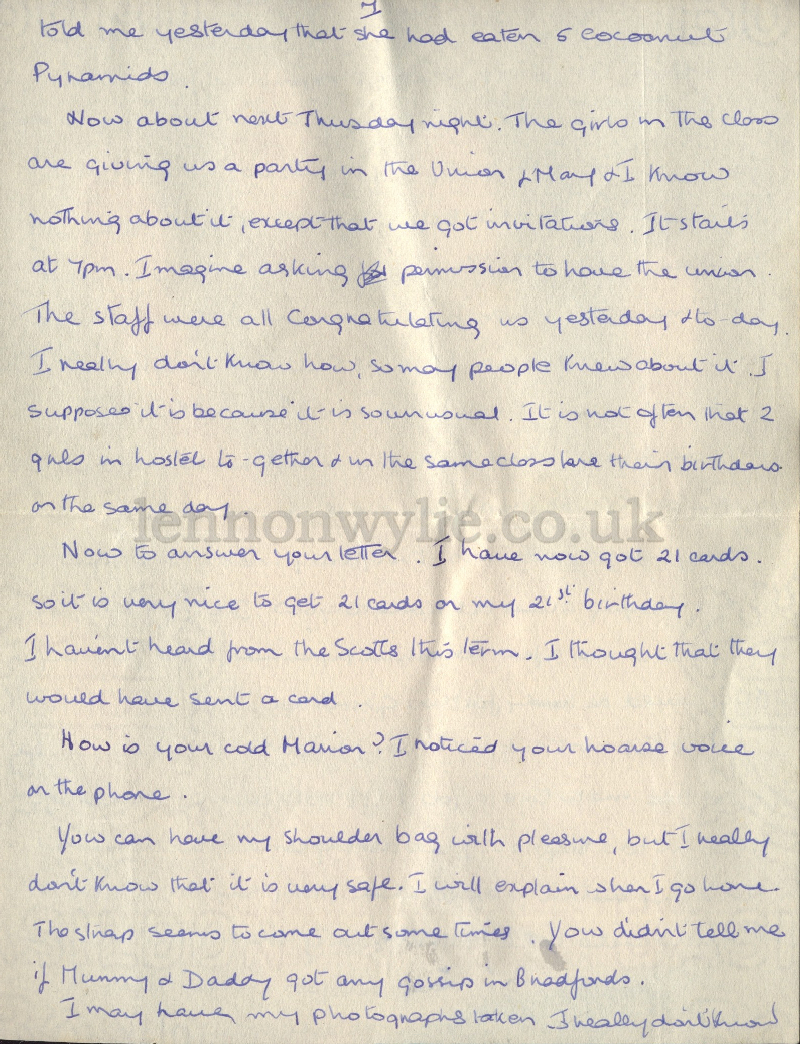 7
told me yesterday that she had eaten 5 Cocoanut
Pyramids.
Now about next Thursday night. The girls in the class
are giving us a party in the Union & Mary & I know
nothing about it, except that we got invitations. It starts
at 7pm. Imagine asking permission to have the union.
The staff were all Congratulating us yesterday & to-day.
I really don't know how, so many people knew about it. I
suppose it is because it is so unusual. It is not often that 2
girls in hostel to-gether & in the same class have their birthdays
on the same day.
lennonwylie.co.uk
Now to answer your letter. I have now got 21 cards.
so it is very nice to get 21 cards on my 21st birthday.
I haven't heard from the Scotts this term. I thought that they
would have sent a card.
How is your cold Marion? I noticed your hoarse voice
on the phone.
You can have my shoulder bag with pleasure, but I really
don't know that it is very safe. I will explain when I go home.
The strap seems to come out some times. You didn't tell me
if Mummy & Daddy got any gossip in Bradfords.
I may have my photographs taken I really don't know